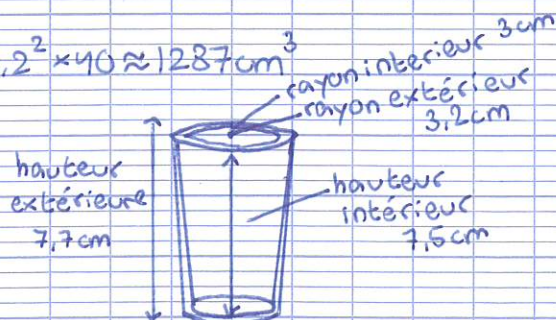 .2² × 40 ≈ 1287cm³
rayon interieur 3cm
rayon extérieur
3,2cm
hauteur
extérieure
7,7cm
hauteur
intérieur
7,5cm